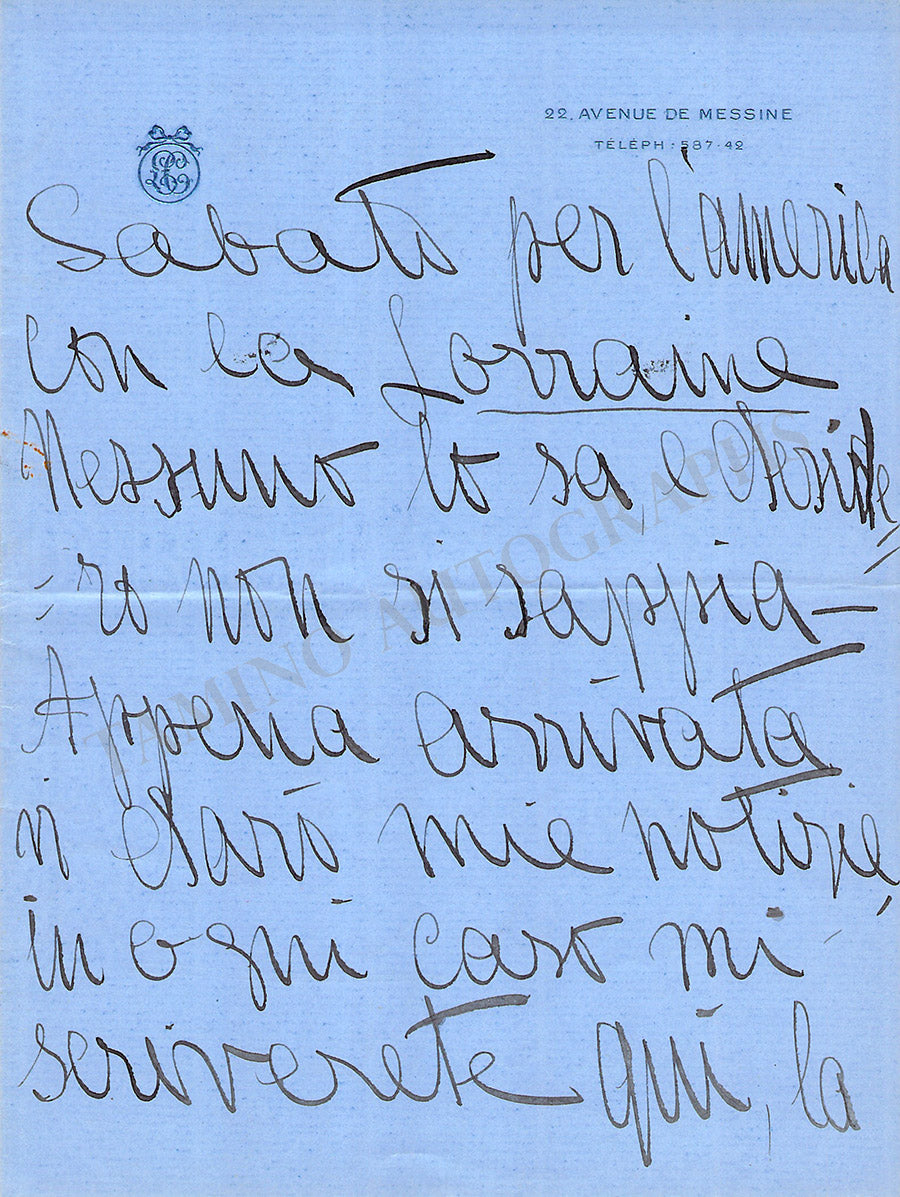 22, AVENUE DE MESSINE
TÉLÉPH : 587·42
Sabato per l'america
con la Lorraine
Nessuno lo sa, e deside=
=ro non si sappia—
Appena arrivata
vi darò mie notizie,
in ogni caso mi
scriverete qui, la
TAMINO AUTOGRAPHS